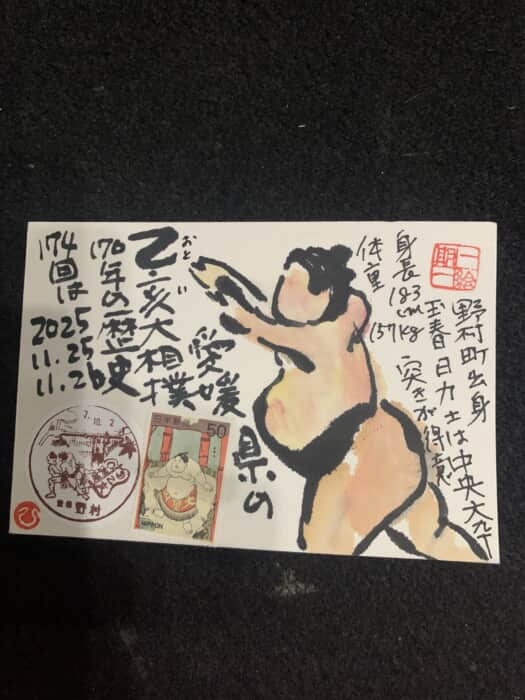 一絵
一期
野村町出身
玉春日力士は中央大卒
突きが得意
身長183cm
体重157kg
愛媛県の
乙亥大相撲
おとい
170年の歴史
174回は2025
11.25
11.26
日本郵便
50
NIPPON
7.10.2
愛媛
野村